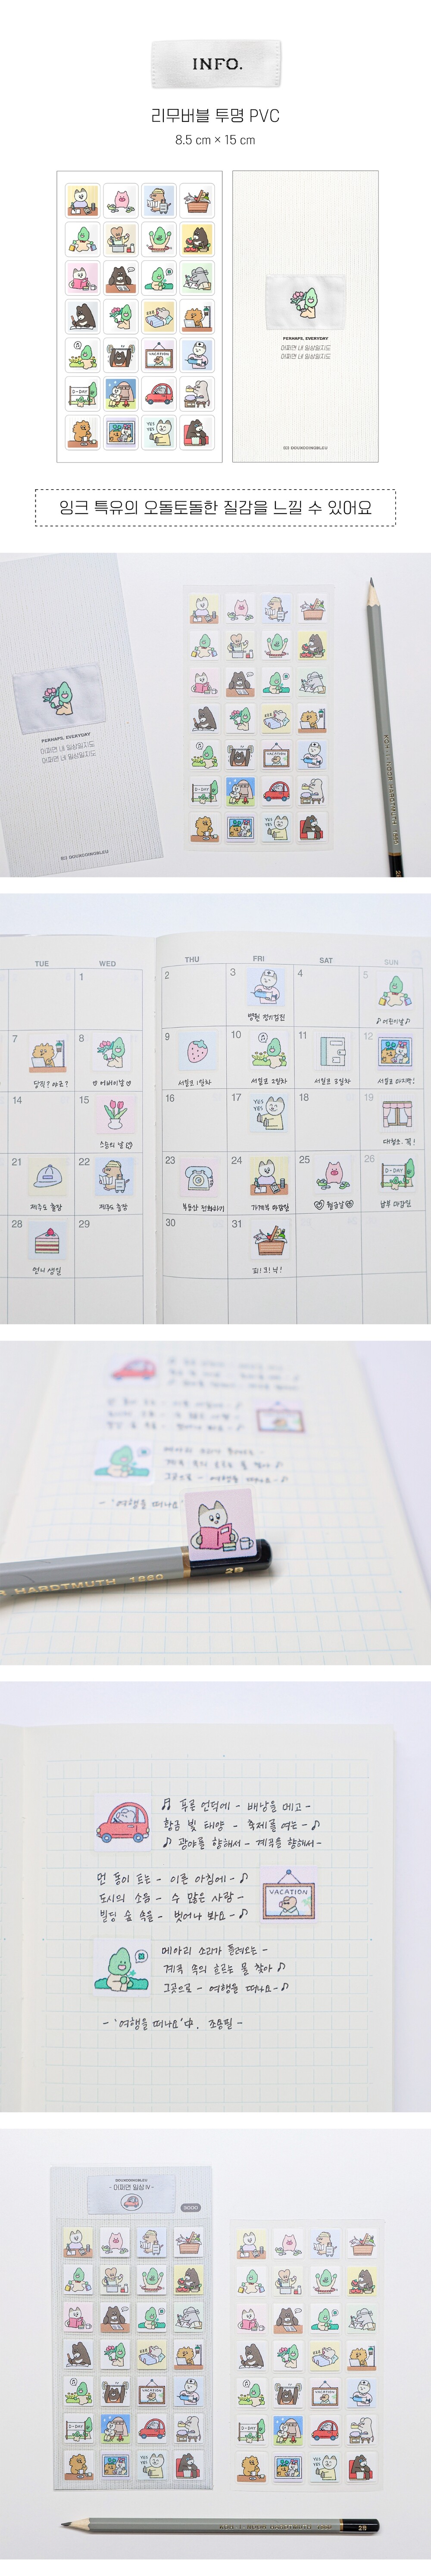 INFO.
리무버블 투명 PVC
8.5 cm × 15 cm
VACATION
D-DAY
YES YES
PERHAPS, EVERYDAY
어쩌면 내 일상일지도
어쩌면 내 일상일지도
잉크 특유의 오돌토돌한 질감을 느낄 수 있어요
PERHAPS, EVERYDAY
어쩌면 내 일상일지도
어쩌면 내 일상일지도
VACATION
D-DAY
YES YES
TUE WED THU FRI SAT SUN
1 2 3 4 5
병원 정기검진
♪ 어린이날 ♪
7 8 9 10 11 12
당직? 야근?
어버이날
서일페 1일차
서일페 2일차
서일페 3일차
서일페 마지막!
14 15 16 17 18 19
스승의 날
YES YES
대청소. 꼭!
21 22 23 24 25 26
제주도 출장
제주도 출장
부모님 전화하기
가계부 마감일
월급날
D-DAY
납부 마감일
28 29 30 31
언니 생일
피! 크! 닉!
HARDTMUTH 1860
2B
♬ 푸른 언덕에 - 배낭을 메고 -
황금 빛 태양 - 축제를 여는 - ♪
♪ 광야를 향해서 - 계곡을 향해서 -
먼 동이 트는 - 이른 아침에 - ♪
도시의 소음 - 수 많은 사람 -
빌딩 숲 속을 - 벗어나 봐요 - ♪
VACATION
메아리 소리가 들려오는 -
계곡 속의 흐르는 물 찾아 ♪
그곳으로 - 여행을 떠나요 - ♪
- '여행을 떠나요' 中, 조용필 -
- 어쩌면 일상 IV -
VACATION
D-DAY
YES YES
VACATION
D-DAY
YES YES
2B